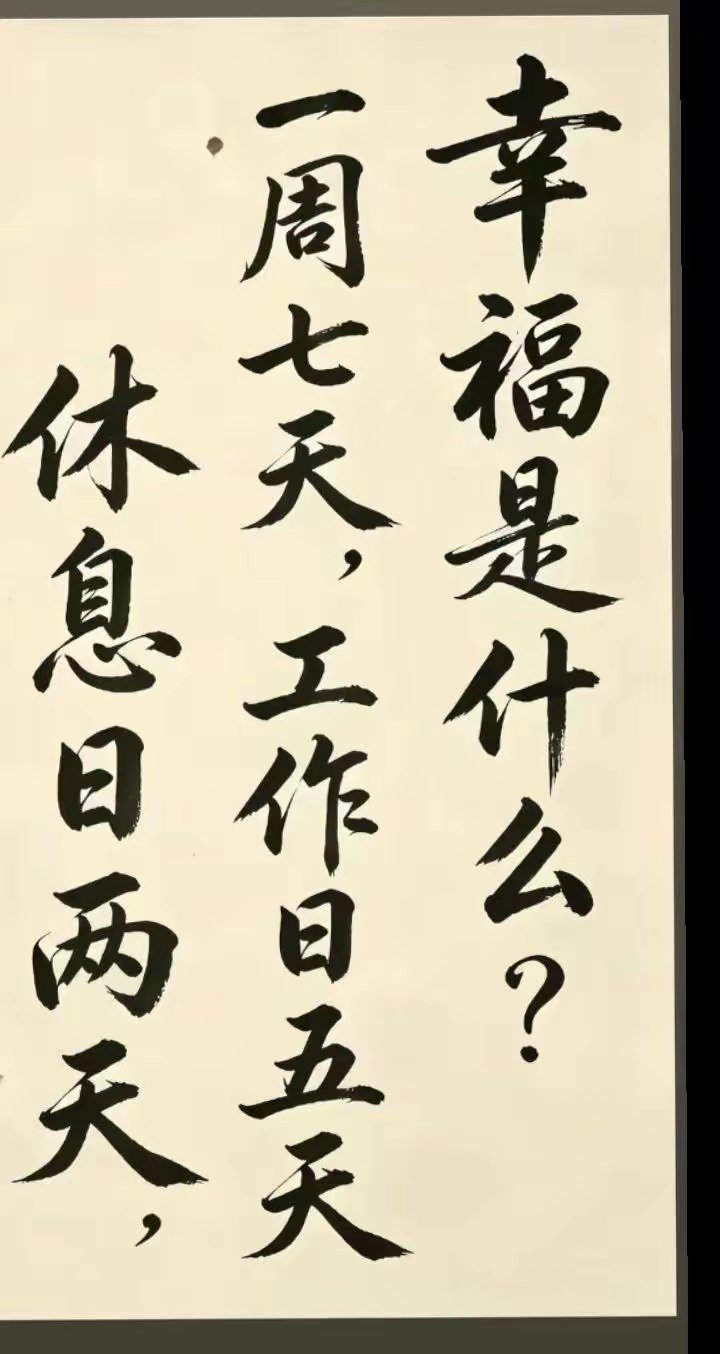 幸福是什么？
一周七天，工作日五天
休息日两天，